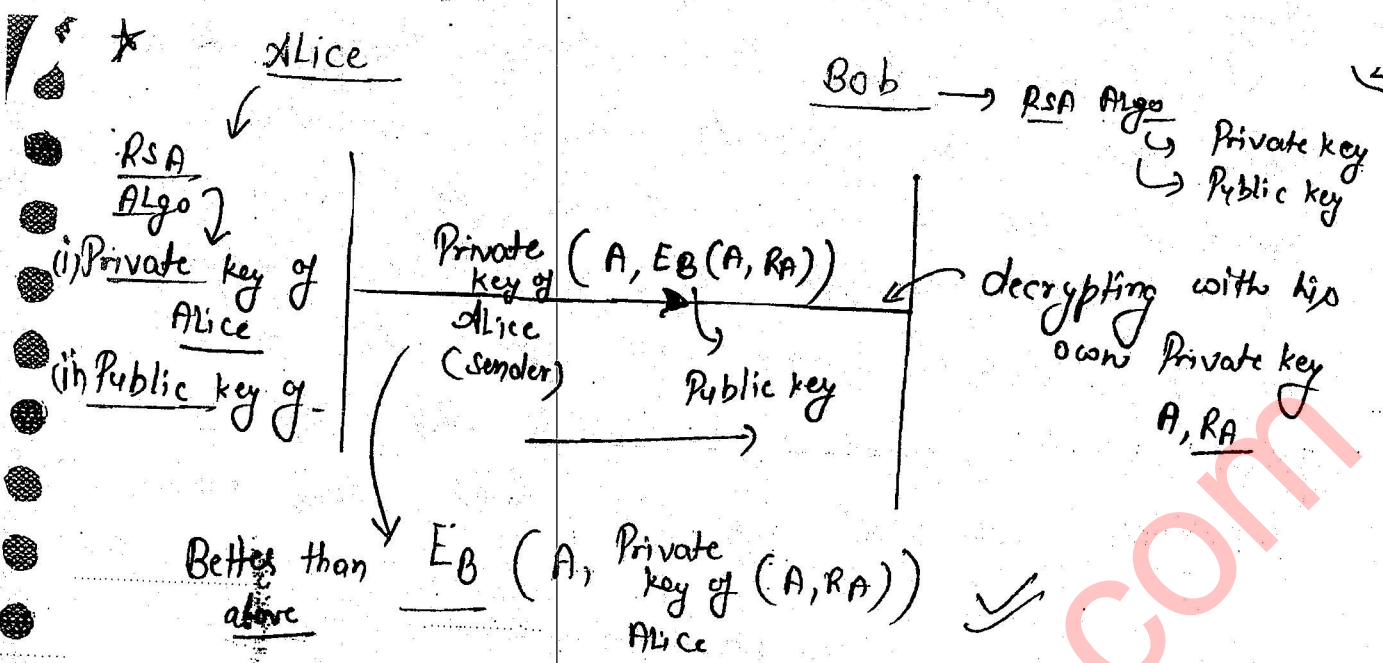 Alice
Bob → RSA Algo
Private key
Public key
RSA
ALgo
(i) Private key of
Alice
(ii) Public key of -
Private key of Alice (sender) (A, EB(A, RA))
Public key
decrypting with his
own Private key
A, RA
Better than above EB (A, Private key of Alice (A, RA))
com